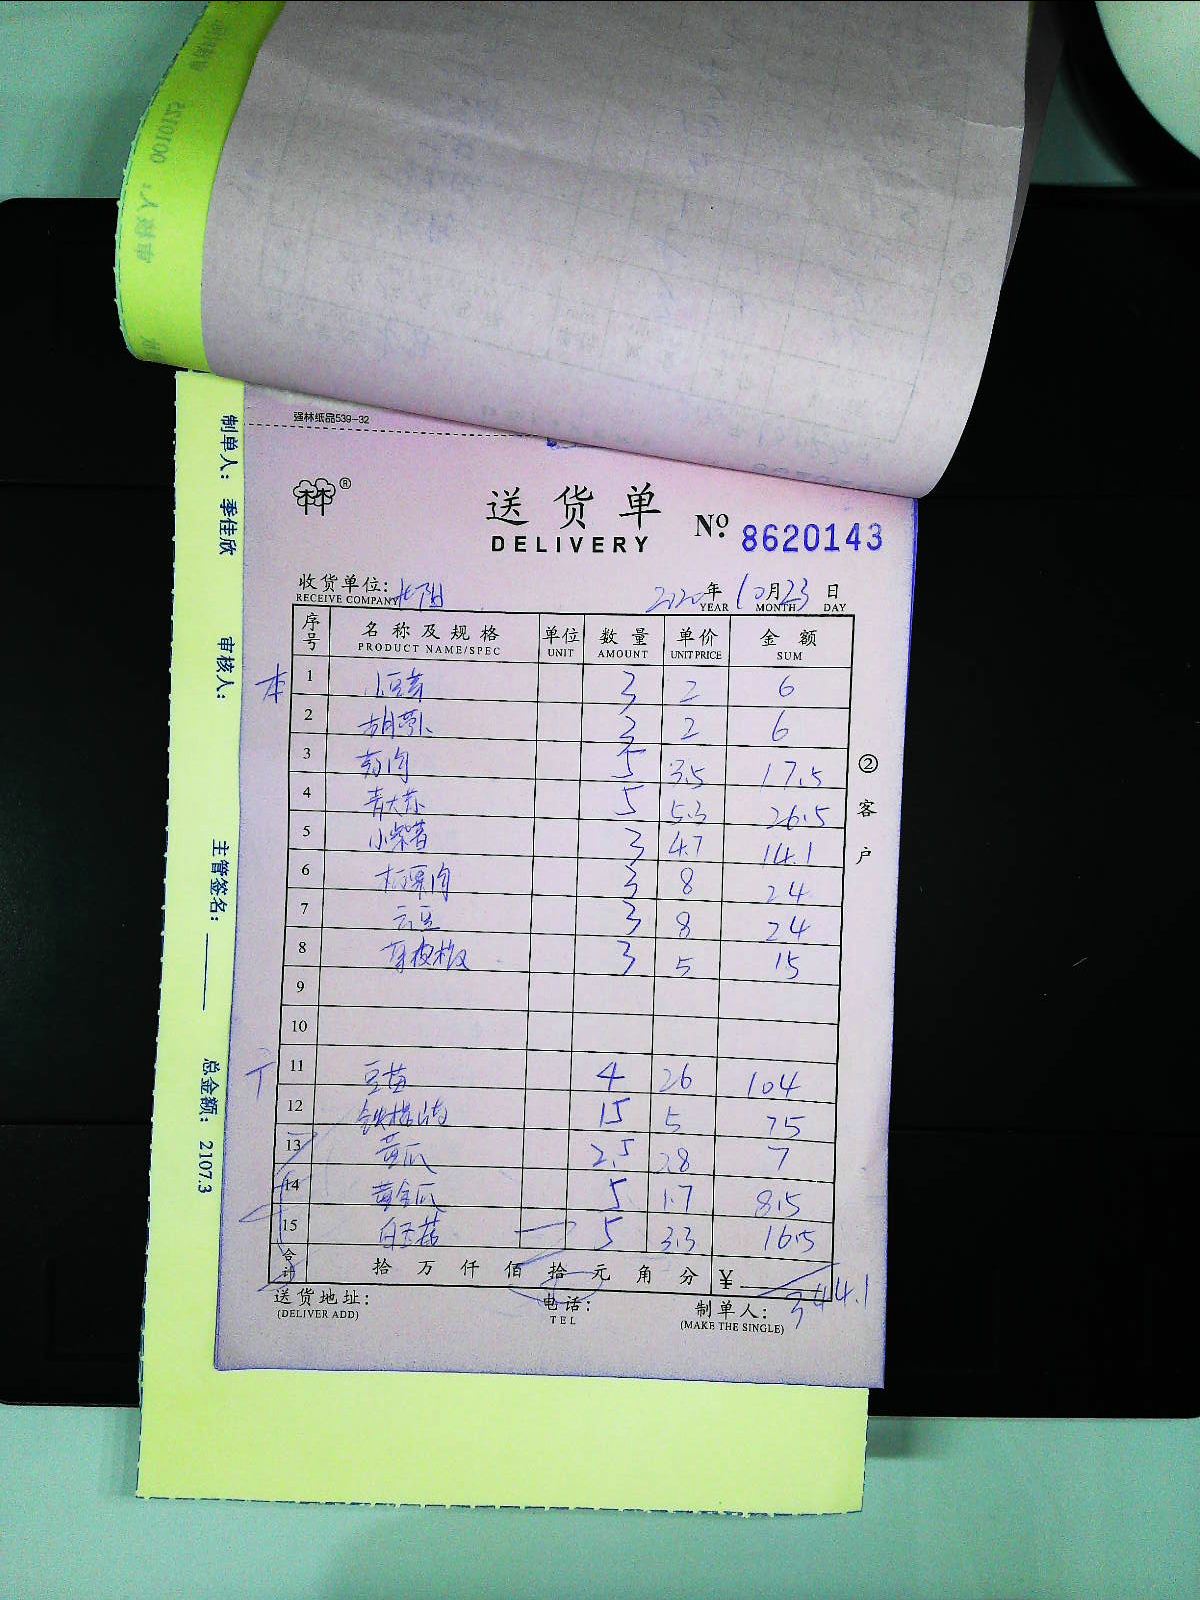 0010125
强林纸品539-32
制单人: 季佳欣
审核人:
主管签名:
总金额: 2107.3
林 ®
送货单 № 8620143
DELIVERY
收货单位: 2020年10月23日
RECEIVE COMPANY YEAR MONTH DAY
序号 名称及规格 单位 数量 单价 金额
PRODUCT NAME/SPEC UNIT AMOUNT UNIT PRICE SUM
本 1 3 2 6
2 胡萝卜 3 2 6
3 5 3.5 17.5
4 青大 5 5.3 26.5
5 3 4.7 14.1
6 3 8 24
7 云豆 3 8 24
8 3 5 15
9
10
11 豆苗 4 26 104
12 15 5 75
13 黄瓜 2.5 2.8 7
14 黄金瓜 5 1.7 8.5
15 白玉菇 5 3.3 16.5
合计 拾万仟佰拾元角分 ¥ 344.1
送货地址: 电话: 制单人:
(DELIVER ADD) TEL (MAKE THE SINGLE)
②客户